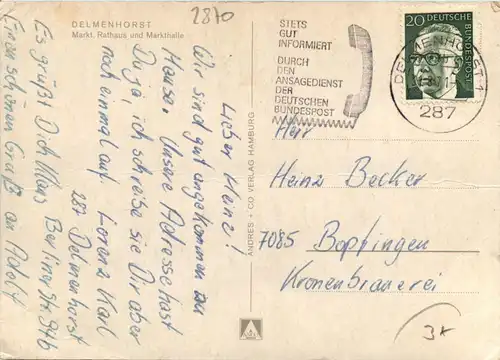 DELMENHORST
Markt, Rathaus und Markthalle
2870
Lieber Heinz!
Wir sind gut angekommen zu
Hause. Unsere Adresse hast
Du ja, ich schreibe sie Dir aber
noch einmal auf. Lorenz Karl
287 Delmenhorst
Berliner Str. 94b
Es grüßt Dich Klaus
Einen schönen Gruß an Adolf
ANDRES + CO VERLAG HAMBURG
STETS
GUT
INFORMIERT
DURCH
DEN
ANSAGEDIENST
DER
DEUTSCHEN
BUNDESPOST
20
DEUTSCHE
BUNDESPOST
DELMENHORST 1
287
Herr
Heinz Becker
7085 Bopfingen
Kronenbrauerei